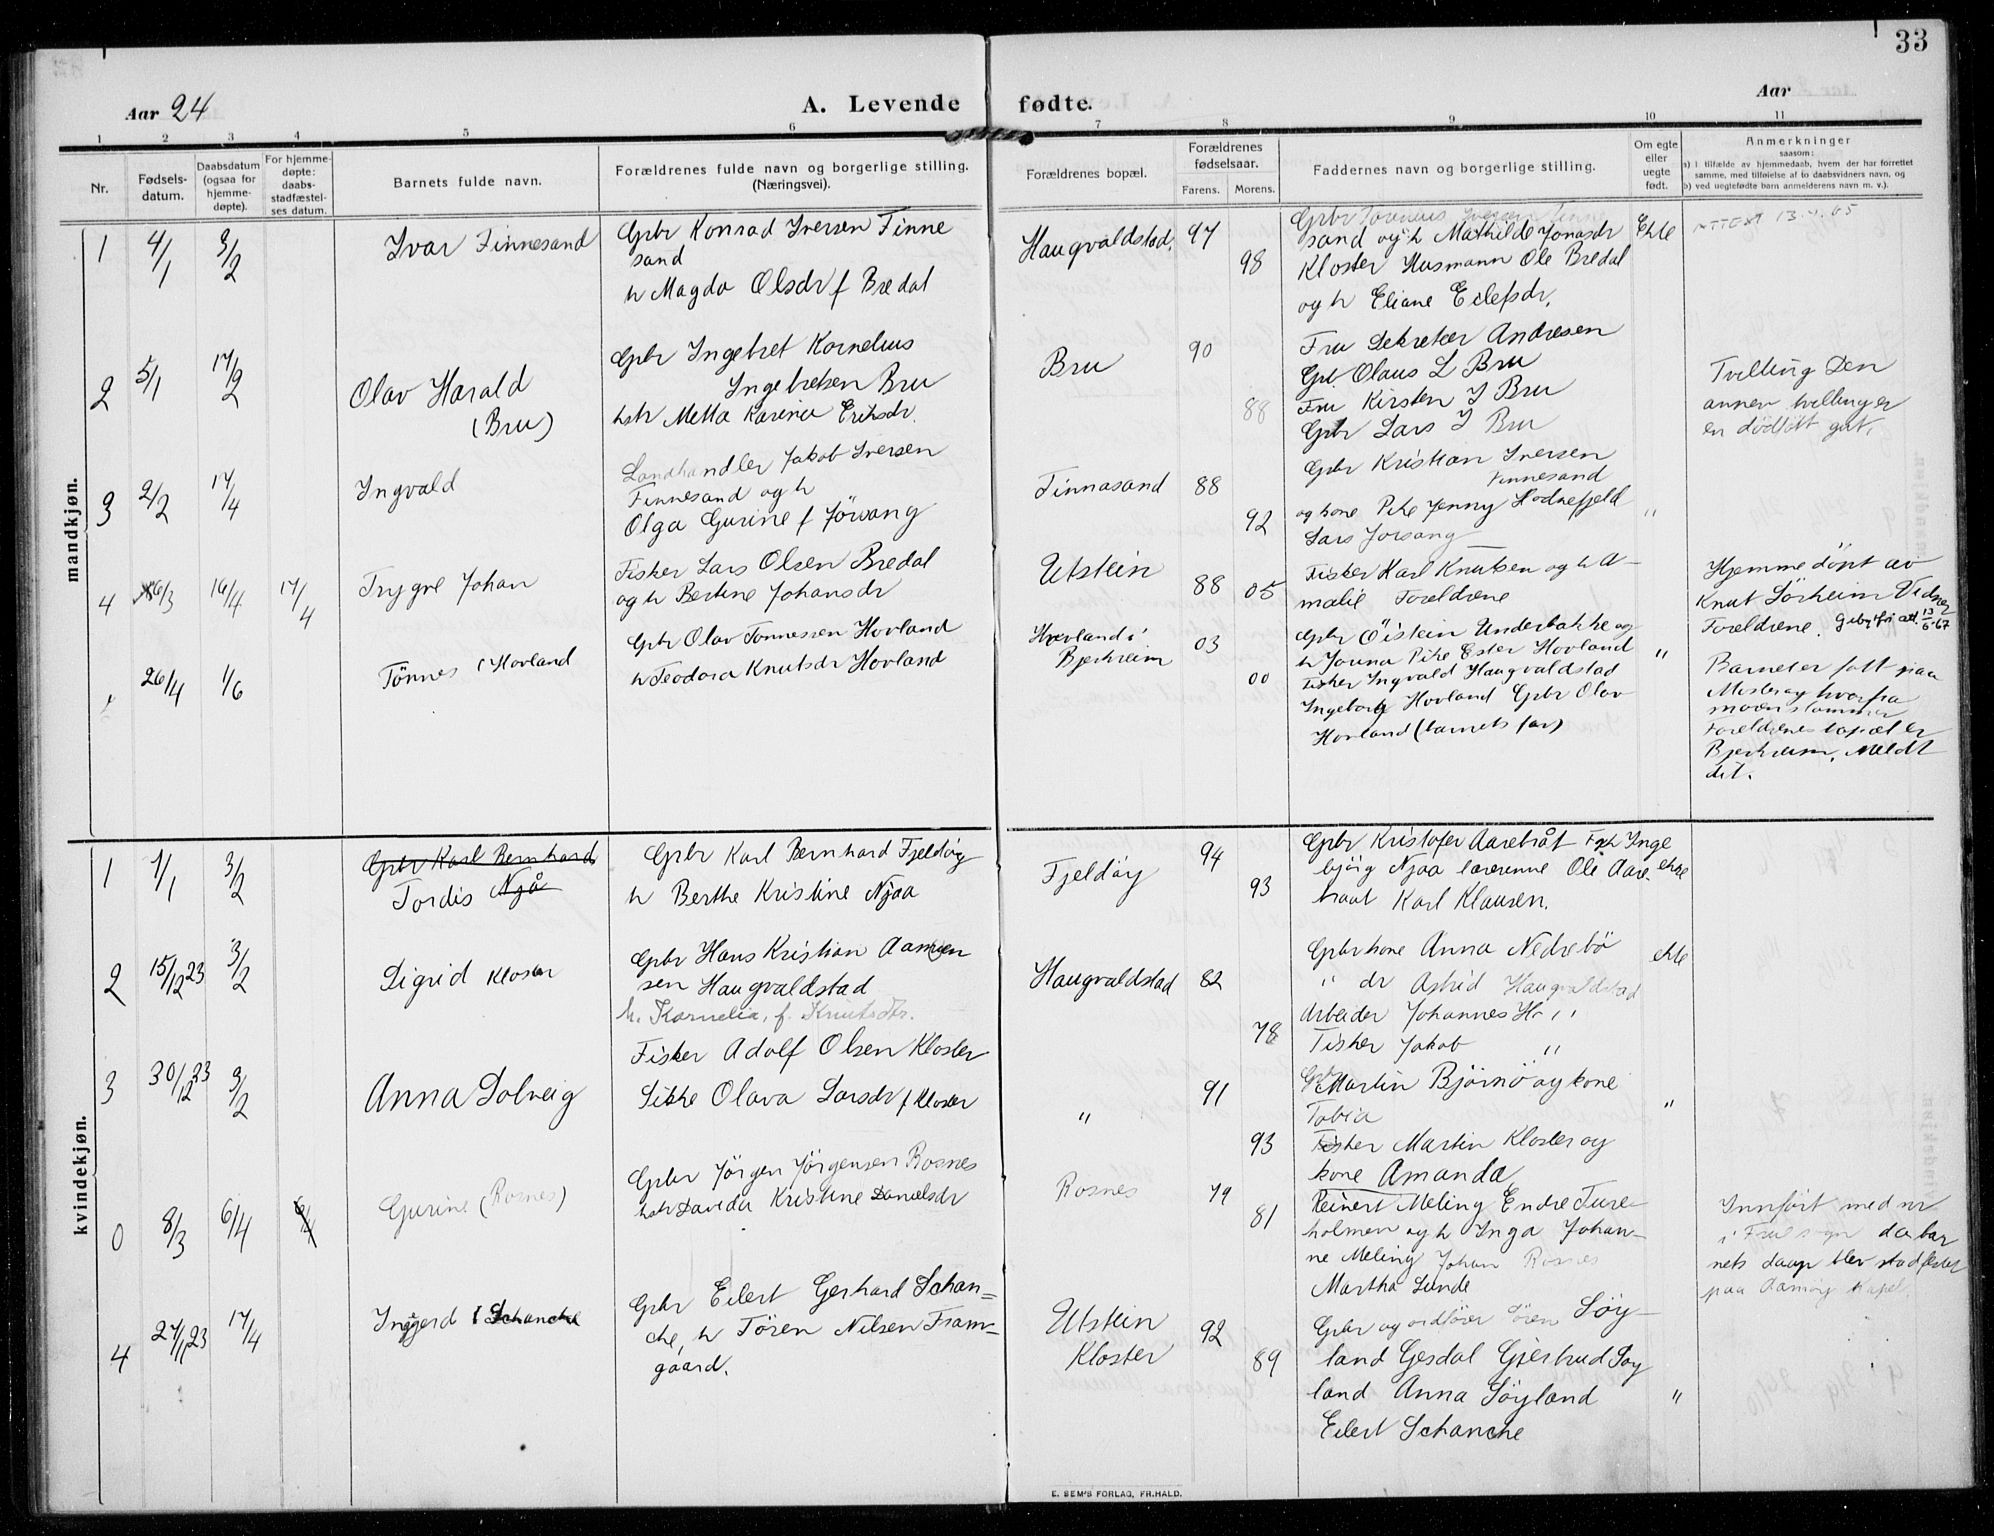 33
Aar 24
A. Levende fødte.
Aar
1 2 3 4 5 6 7 8 9 10 11
Nr.
Fødsels-
datum.
Daabsdatum
(ogsaa for
hjemme-
døpte).
For hjemme-
døpte:
daabs-
stadfæstel-
ses datum.
Barnets fulde navn.
Forældrenes fulde navn og borgerlige stilling.
(Næringsvei).
Forældrenes bopæl.
Forældrenes
fødselsaar.
Farens. Morens.
Faddernes navn og borgerlige stilling.
Om egte
eller
uegte
født.
Anmerkninger
saasom:
a) I tilfælde av hjemmedaab, hvem der har forrettet
samme, med tilføielse af to daabsvidners navn, og
b) ved uegtefødte barn anmelderens navn m. v.).
mandkjøn.
1 4/1 3/2
Ivar Finnesand
Gpbr Konrad Iversen Finne
sand
h Magda Olsdr f Bredal
Haugvaldstad.
97
98
Gpbr Iversen Finne
sand og h Mathilde Jonasdr
Kloster Husmann Ole Bredal
og h Eliane Eilefsdr.
Ekte
ATTEST 13.4.65
2 5/1 17/2
Olav Harald
(Bru)
Gpbr Ingebret Kornelius
Ingebretsen Bru
hstr Metta Karina Eriksdr.
Bru
90
88
Fru Sekretær Andresen
Gpb. Olaus L Bru
Fru Kirsten I Bru
Gpbr Lars I Bru
Tvilling Den
annen tvilling er
en dödfött gut.
3 2/2 17/4
Ingvald
Landhandler Jakob Iversen
Finnesand og h
Olga Gurine f Jørsang
Finnasand
88
92
Gpbr Kristian Iversen
Finnesand
og kone Pike Jenny Hodnefjeld
Lars Jorsang
"
4 16/3 16/4 17/4
Trygve Johan
Fisker Lars Olsen Bredal
og h Bertine Johansdr
Utstein
88
05
Fisker Karl Knutsen og h A-
malie Foreldrene
Hjemme döpt av
Knut Sörheim Vidner
Foreldrene. Geb.fri att. 13/6-67
26/4 1/6
Tönnes (Hovland
Gpbr Olav Tonnessen Hovland
h Teodora Knutsdr Hovland
Hovland i
Bjerkreim
03
00
Gpbr Öistein Underbakke og
h Jonna Pike Ester Hovland
Fisker Ingvald Haugvaldstad
Ingeborg Hovland Gpbr Olav
Hovland (barnets far)
"
Barnet er fött paa
Mosteröy hvorfra
moren stammer
Foreldrenes bopæl er
Bjerkreim. Meldt
dit.
kvindekjøn.
1 1/1 3/2
Gpbr Karl Bernhard
Tordis Njå
Gpbr Karl Bernhard Fjeldöy
h Berthe Kristine Njaa
Fjeldöy
94
93
Gpbr Kristofer Aarebråt Frk Inge
björg Njaa lærerinne Ole Aare-
braat Karl Klausen.
ekte
2 15/12 23 3/2
Sigrid Kloster
Gpbr Hans Kristian Aamien
sen Haugvaldstad
h. Kornelia, f. Knutsdtr.
Haugvaldstad
82
78
Gpbr kone Anna Nedrebö
" dr Astrid Haugvaldstad
Arbeider Johannes H "
Fisker Jakob "
ekte
3 30/12 23 3/2
Anna Solveig
Fisker Adolf Olsen Kloster
Sikke Olava Larsdr f Kloster
"
91
93
Gpbr Martin Björnö og kone
Tobia
Fisker Martin Kloster og
kone Amanda
"
0 8/3 6/4 6/4
Gurine (Rosnes)
Gpbr Jörgen Jörgensen Rosnes
hstr Davida Kristine Danielsdr
Rosnes
79
81
Reinert Meling Endre Ture-
holmen og h Inga Johan-
ne Meling Johan Rosnes
Martha Lunde
Innfört med nr
i da bar
nets daap blev stadfestet
paa Aamöy Kapel.
4 27/1 23 17/4
Inggerd (Schanche
Gpbr Eilert Gerhard Schan=
che, h Tören Nilsen Fram-
gaard.
Utstein
Kloster
92
89
Gpbr og ordförer Sören Söy-
land Gesdal Gjertrud Söy
land Anna Söyland
Eilert Schanche
"
E. SEM'S FORLAG, FR.HALD.